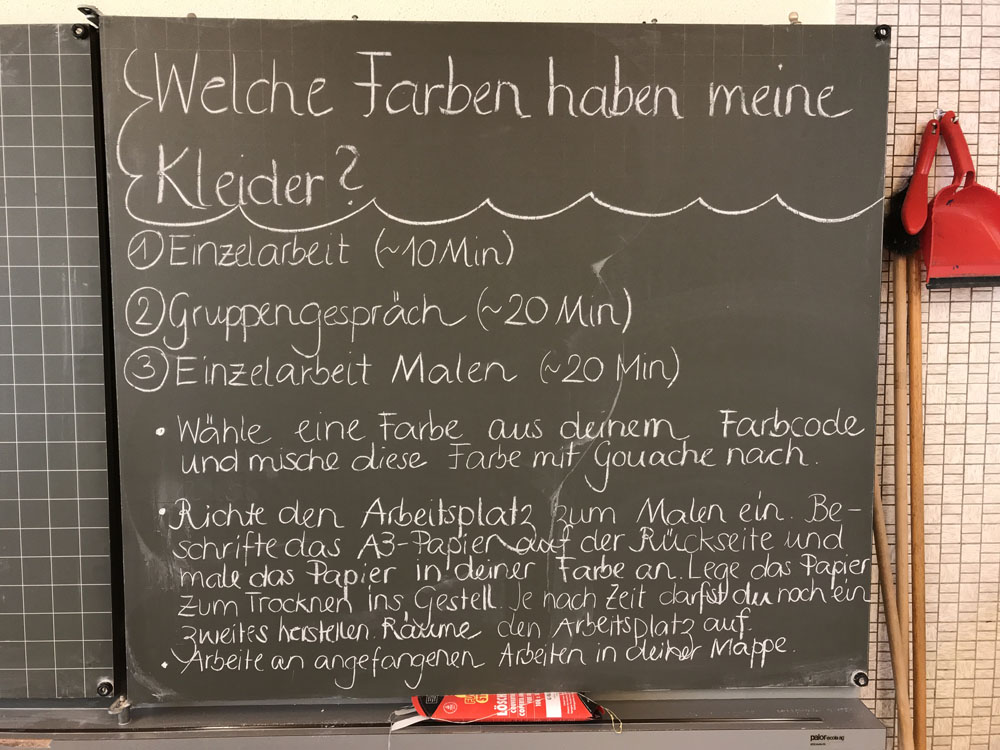 Welche Farben haben meine
Kleider?
① Einzelarbeit (~10 Min)
② Gruppengespräch (~20 Min)
③ Einzelarbeit Malen (~20 Min)
• Wähle eine Farbe aus deinem Farbcode
und mische diese Farbe mit Gouache nach.
• Richte den Arbeitsplatz zum Malen ein. Be-
schrifte das A3-Papier auf der Rückseite und
male das Papier in deiner Farbe an. Lege das Papier
zum Trocknen ins Gestell. Je nach Zeit darfst du noch ein
zweites herstellen. Räume den Arbeitsplatz auf.
• Arbeite an angefangenen Arbeiten in deiner Mappe.
LÖSCH